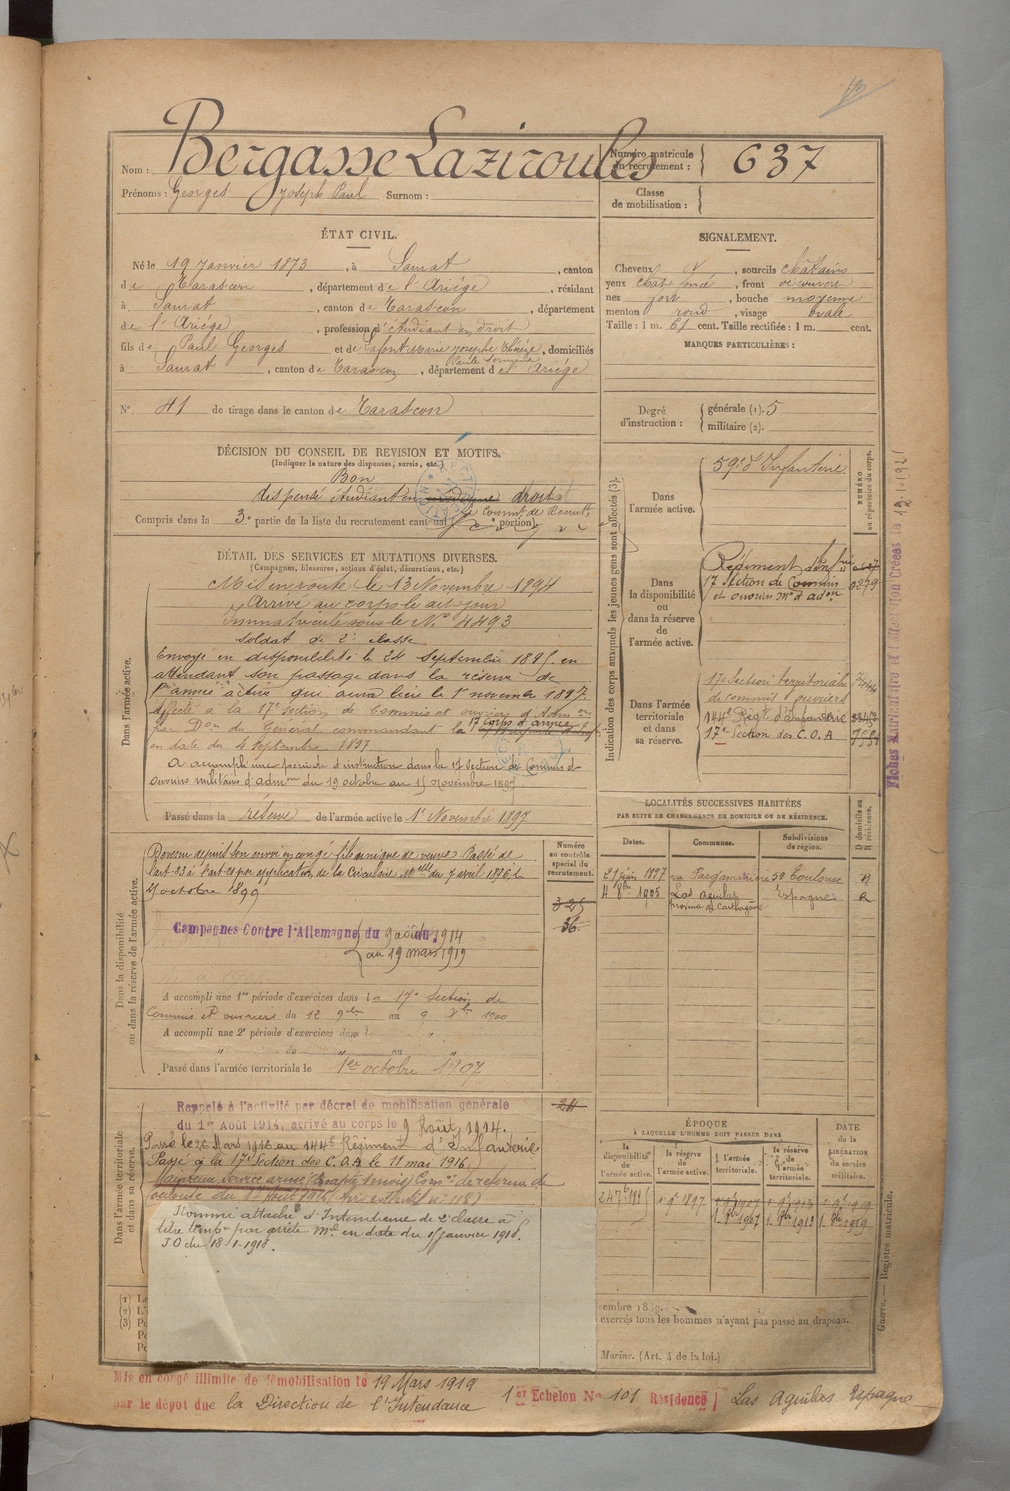 Nom : Bergasse Laziroules
Numéro matricule du recrutement : 637
Prénoms : Georges Joseph Paul Surnom :
Classe de mobilisation :
ÉTAT CIVIL.
Né le 19 Janvier 1873, à Saurat, canton
de Tarascon, département de l'Ariége, résidant
à Saurat, canton de Tarascon, département
de l'Ariége, profession d'étudiant en droit
fils de Paul Georges et de Lafont Marie Josephe Thérèze, domiciliés
à Saurat, canton de Tarascon, département de l'Ariége
N° 41 de tirage dans le canton de Tarascon
SIGNALEMENT.
Cheveux N, sourcils châtains
yeux chat foncé, front découvert
nez fort, bouche moyenne
menton rond, visage ovale
Taille : 1 m. 61 cent. Taille rectifiée : 1 m. cent.
MARQUES PARTICULIÈRES :
Degré d'instruction : générale (1). 5
militaire (2).
DÉCISION DU CONSEIL DE REVISION ET MOTIFS.
(Indiquer la nature des dispenses, sursis, etc.)
Bon
dispensé étudiant en droit
Compris dans la 3e partie de la liste du recrutement cantonal
DÉTAIL DES SERVICES ET MUTATIONS DIVERSES.
(Campagnes, blessures, actions d'éclat, décorations, etc.)
Dans l'armée active.
Mis en route le 13 Novembre 1894
Arrivé au corps le dit jour
Immatriculé sous le N° 4493
Soldat de 2e classe
Envoyé en disponibilité le 24 Septembre 1895 en
attendant son passage dans la réserve de
l'armée active qui aura lieu le 1er novembre 1897
Affecté à la 17e Section de Commis et ouvriers d'Adm on
par Don du Général commandant le 17e Corps d'armée
en date du 4 Septembre 1897
A accompli une période d'instruction dans la 17e Section de Commis et
ouvriers militaires d'admon du 19 octobre au 15 Novembre 1897
Passé dans la réserve de l'armée active le 1er Novembre 1897
Dans la disponibilité ou dans la réserve de l'armée active.
Devenu depuis son envoi en congé fils unique de veuve. Passé de
l'art. 23 à l'art. 21 par application de la Circulaire Mlle du 7 avril 1896 le
octobre 1899
Campagnes Contre l'Allemagne du 9 août 1914
au 19 mars 1919
A accompli une 1re période d'exercices dans la 17e Section de
Commis et ouvriers du 12 9bre au 9 Xbre 1900
A accompli une 2e période d'exercices dans
" du " au "
Passé dans l'armée territoriale le 1er octobre 1907
Numéro au contrôle spécial du recrutement.
325
36
24
Dans l'armée territoriale et dans sa réserve.
Rappelé à l'activité par décret de mobilisation générale
du 1er Août 1914, arrivé au corps le 9 Août 1914.
Passé le 26 Mars 1916 au 144e Régiment d'Infanterie
Passé à la 17e Section des C.O.A le 11 mai 1916.
Maintenu service armé Comon de réforme de
Toulouse du
Nommé attaché d'Intendance de 2e classe à
titre tempre par arrêté Mel en date du 15 janvier 1918.
J.O du 18-1-1918.
Indication des corps auxquels les jeunes gens sont affectés (3).
NUMÉRO au répertoire du corps.
Dans l'armée active.
59e d'Infanterie
Dans la disponibilité ou dans la réserve de l'armée active.
Régiment d'Infrie
17 Section de Commis 0279
et ouvriers Mres d'admon
Dans l'armée territoriale et dans sa réserve.
17e Section territoriale
de commis ouvriers
144e Régt d'Infanterie
17e Section des C.O.A
Fiches
LOCALITÉS SUCCESSIVES HABITÉES
PAR SUITE DE CHANGEMENTS DE DOMICILE OU DE RÉSIDENCE.
Dates. Communes. Subdivisions de région. D domicile ou R résidence.
21 juin 1897 Toulouse R
4 8bre 1905 Las Aguilas Espagne R
province de Carthagène
ÉPOQUE
À LAQUELLE L'HOMME DOIT PASSER DANS
la disponibilité de l'armée active. la réserve de l'armée active. l'armée territoriale. la réserve de l'armée territoriale.
DATE de la LIBÉRATION du service militaire.
24 7bre 1895 1er 9bre 1897 1er 9bre 1907 1er 9bre 1913 1er 9bre 1919
1. 8bre 1907 1. 8bre 1913 1. 8bre 1919
exercés tous les hommes n'ayant pas passé au drapeau.
Marine. (Art. 4 de la loi.)
Guerre. — Registre matricule.
Mis en congé illimité de démobilisation le 19 Mars 1919 1er Echelon N° 101 Résidence Las Aguilas Espagne
par le dépôt de la Direction de l'Intendance